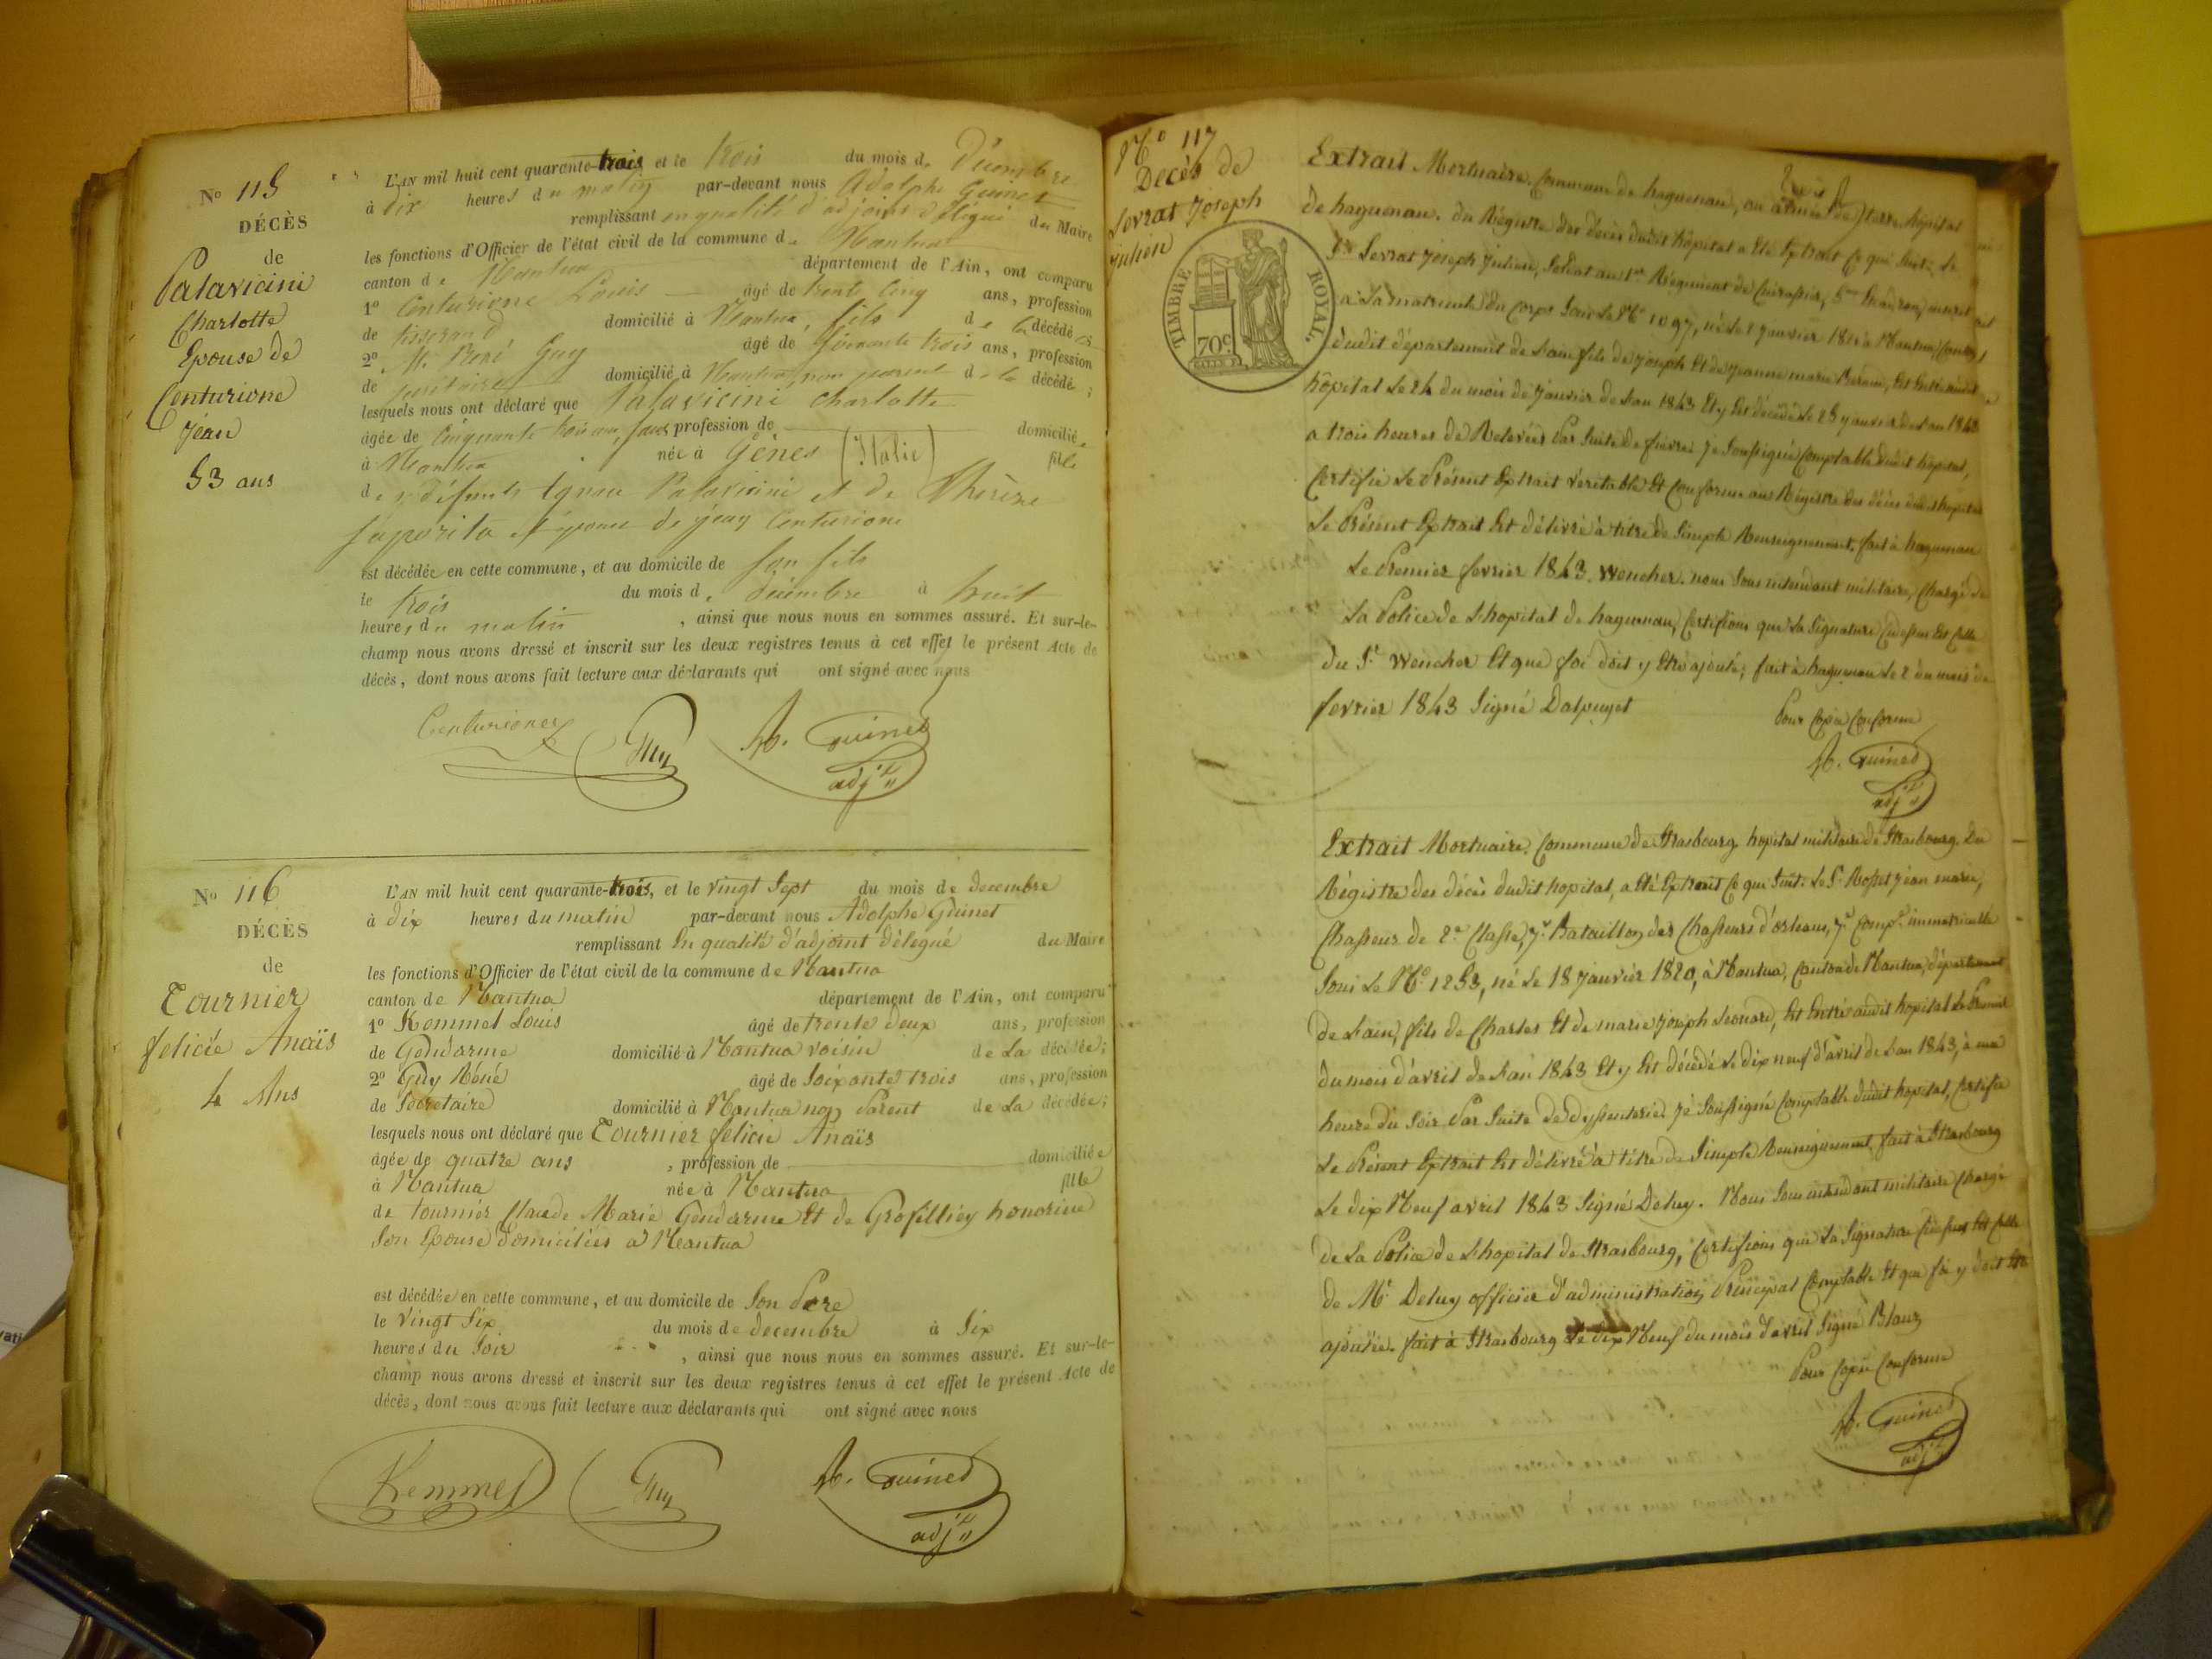 No 115
DÉCÈS
de
Palavicini
Charlotte
Epouse de
Centurione
Jéan
53 ans
L'AN mil huit cent quarante-trois et le trois du mois de Décembre
à dix heures du matin par-devant nous Adolphe Guinet
remplissant en qualité d'adjoint délégué du Maire
les fonctions d'Officier de l'état civil de la commune de Nantua
canton de Nantua département de l'Ain, ont comparu
1º Centurione Louis âgé de trente cinq ans, profession
de tisserand domicilié à Nantua, fils de la décédée
2º M. René Guy âgé de soixante trois ans, profession
de secrétaire domicilié à Nantua, non parent de la décédé ;
lesquels nous ont déclaré que Palavicini Charlotte
âgée de cinquante trois ans, sans profession de domiciliée
à Nantua née à Gènes (Italie) fille
des défunts Ignace Palavicini et de Thérèze
Saporita et épouse de jean Centurione
est décédée en cette commune, et au domicile de son fils
le trois du mois de décembre à huit
heures du matin , ainsi que nous nous en sommes assuré. Et sur-le-
champ nous avons dressé et inscrit sur les deux registres tenus à cet effet le présent Acte de
décès, dont nous avons fait lecture aux déclarants qui ont signé avec nous
Centurione Guy A. Guinet
adjt
No 116
DÉCÈS
de
Tournier
félicie Anaïs
4 Ans
L'AN mil huit cent quarante-trois, et le vingt Sept du mois de decembre
à dix heures du matin par-devant nous Adolphe Guinet
remplissant En qualité d'adjoint délegué du Maire
les fonctions d'Officier de l'état civil de la commune de Nantua
canton de Nantua département de l'Ain, ont comparu
1º Kemmel Louis âgé de trente deux ans, profession
de Gendarme domicilié à Nantua voisin de La décédée;
2º Guy Réné âgé de Soixante trois ans, profession
de Secretaire domicilié à Nantua non Parent de La décédée;
lesquels nous ont déclaré que Tournier félicie Anaïs
âgée de quatre ans , profession de domiciliée
à Nantua née à Nantua fille
de tournier Claude Marie Gendarme Et de Grosfilliey honorine
Son Epouse Domiciliés à Nantua
est décédée en cette commune, et au domicile de Son Pere
le Vingt Six du mois de decembre à Six
heures du Soir , ainsi que nous nous en sommes assuré. Et sur-le-
champ nous avons dressé et inscrit sur les deux registres tenus à cet effet le présent Acte de
décès, dont nous avons fait lecture aux déclarants qui ont signé avec nous
Kemmel Guy A. Guinet
adjt
No 117
Decès de
Sevrat Joseph
julien
TIMBRE ROYAL.
70c
Extrait Mortuaire. Commune de haguenau, hôpital
de haguenau. du Régistre des decès dudit hôpital a Eté Extrait Ce qui Suit: Le
Sr Sevrat Joseph Julien, Soldat au 1er Régiment de Cuirassier, 5me Escadron, inscrit
à La matricule du Corps Sous Le No 1097, né Le 1 janvier 182 à Nantua, Canton
dudit département de Lain fils de joseph Et de jeanne marie, Est Entré audit
hôpital Le 24 du mois de janvier de Lan 1843 Et y Est décédé Le 25 janvier de Lan 1843
a trois heures de Relevée Par Suite de fièvre. je Soussigné Comptable dudit hopital,
Certifie Le Présent Extrait Véritable Et Conforme au Régistre des décès dudit hopital
Le Présent Extrait Est délivré à titre de Simple Renseignement. fait à haguenau
Le Premier fevrier 1843. Wencher. nous Sous intendant militaire, Chargé de
La Police de L'hopital de haguenau, Certifions que La Signature Cidessus Est Celle
du Sr Wencher Et que foi doit y Etre ajouté; fait à haguenau Le 2 du mois de
fevrier 1843 Signé Dalpuget
Pour Copie Conforme
A. Guinet
adjt
Extrait Mortuaire. Commune de Strasbourg hopital militaire de Strasbourg. Du
Régistre des décès dudit hopital, a Eté Extrait Ce qui Suit: Le Sr Rosset jean marie,
Chasseur de 2e Classe, 7e Bataillon des Chasseurs d'orleans, 7e Compie immatriculé
Sous Le No 1253, né Le 18 janvier 1820, à Nantua, Canton de Nantua, département
de Lain, fils de Charles Et de marie joseph Leonard, Est Entré audit hopital Le Premier
du mois d'avril de Lan 1843 Et y Est décédé Le dix neuf d'avril de Lan 1843, à une
heure du Soir Par Suite de dyssenterie. je Soussigné Comptable dudit hopital, Certifie
Le Présent Extrait Est délivré à titre de Simple Renseignement, fait à Strasbourg
Le dix Neuf avril 1843 Signé Deluy. Nous Sous intendant militaire Chargé
de La Police de L'hopital de Strasbourg, Certifions que La Signature Cidessus Est Celle
de Mr Deluy officier d'administration Principal Comptable Et que foi y doit Etre
ajoutée. fait à Strasbourg Le dix Neuf du mois d'avril Signé Blanz
Pour Copie Conforme
A. Guinet
adjt